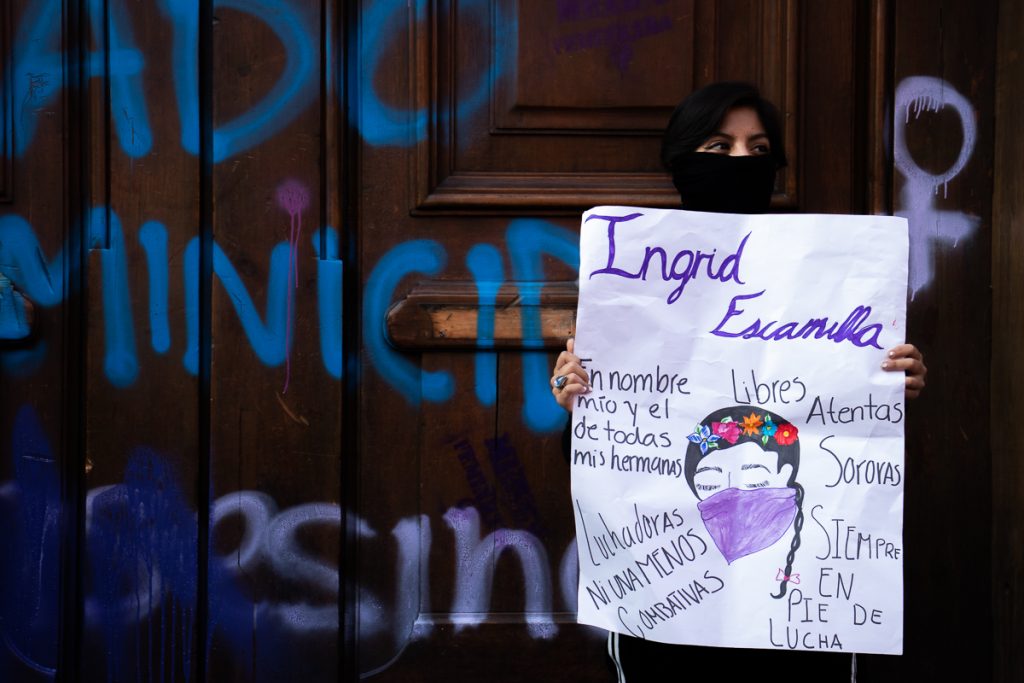 ADO
MINICID
Ingrid
Escamilla
En nombre
mío y el
de todas
mis hermanas
Libres
Atentas
Sororas
Luchadoras
Ni UNA MENOS
Combativas
SIEMPRE
EN
PIE DE
LUCHA